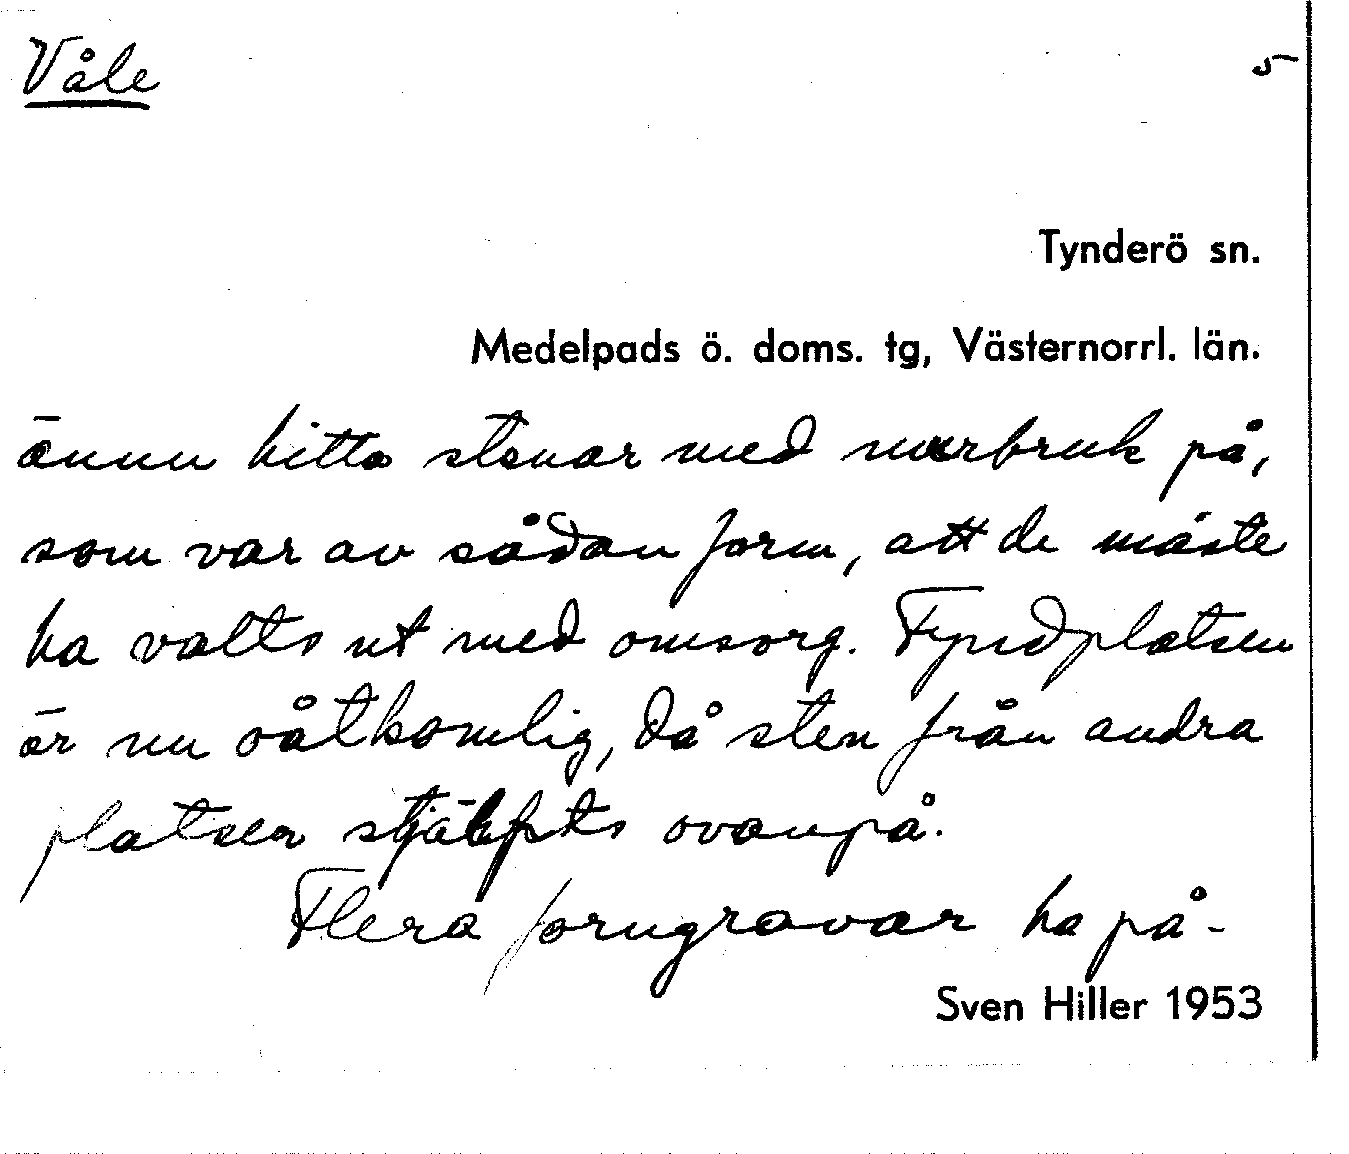 Våle
5
Tynderö sn.
Medelpads ö. doms. tg, Västernorrl. län.
ännu hitta stenar med murbruk på,
som var av sådan form, att de måste
ha valts ut med omsorg. Fyndplatsen
är nu oåtkomlig, då sten från andra
platser stjälpts ovanpå.
Flera forngravar ha på-
Sven Hiller 1953